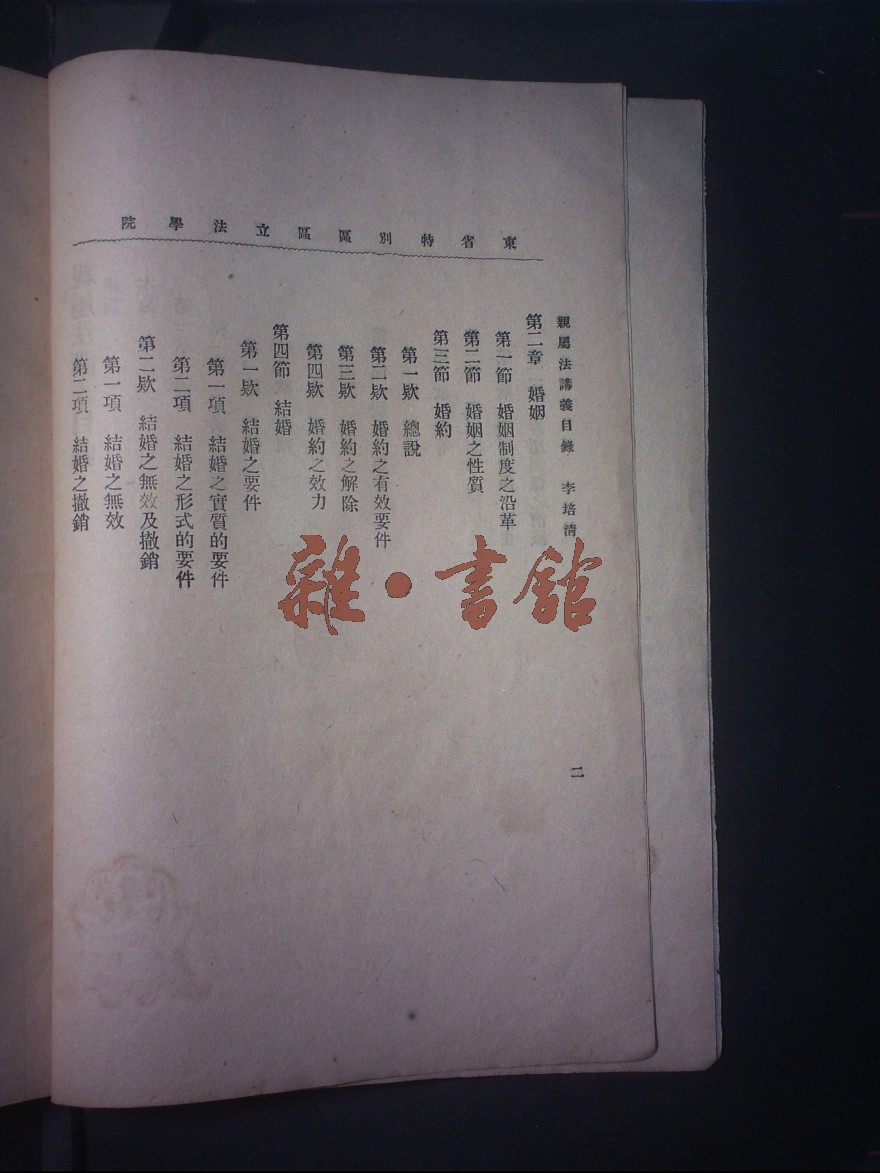 東省特別區區立法學院
親屬法講義目錄 李培清
二
第二章 婚姻
第一節 婚姻制度之沿革
第二節 婚姻之性質
第三節 婚約
第一欵 總說
第二欵 婚約之有效要件
第三欵 婚約之解除
第四欵 婚約之效力
第四節 結婚
第一欵 結婚之要件
第一項 結婚之實質的要件
第二項 結婚之形式的要件
第二欵 結婚之無效及撤銷
第一項 結婚之無效
第二項 結婚之撤銷
雜·書館